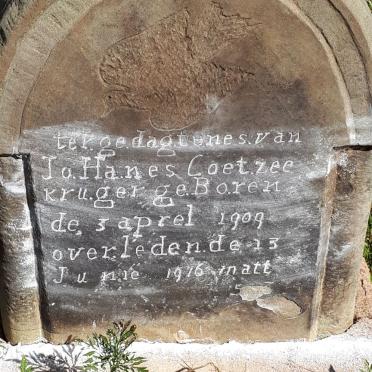 ter.gedagtenes.van
Jo.Ha.nes Coetzee
kruger.geBoren
de 3 aprel 1909
over.leden.de 13
Junie 1916 matt
5